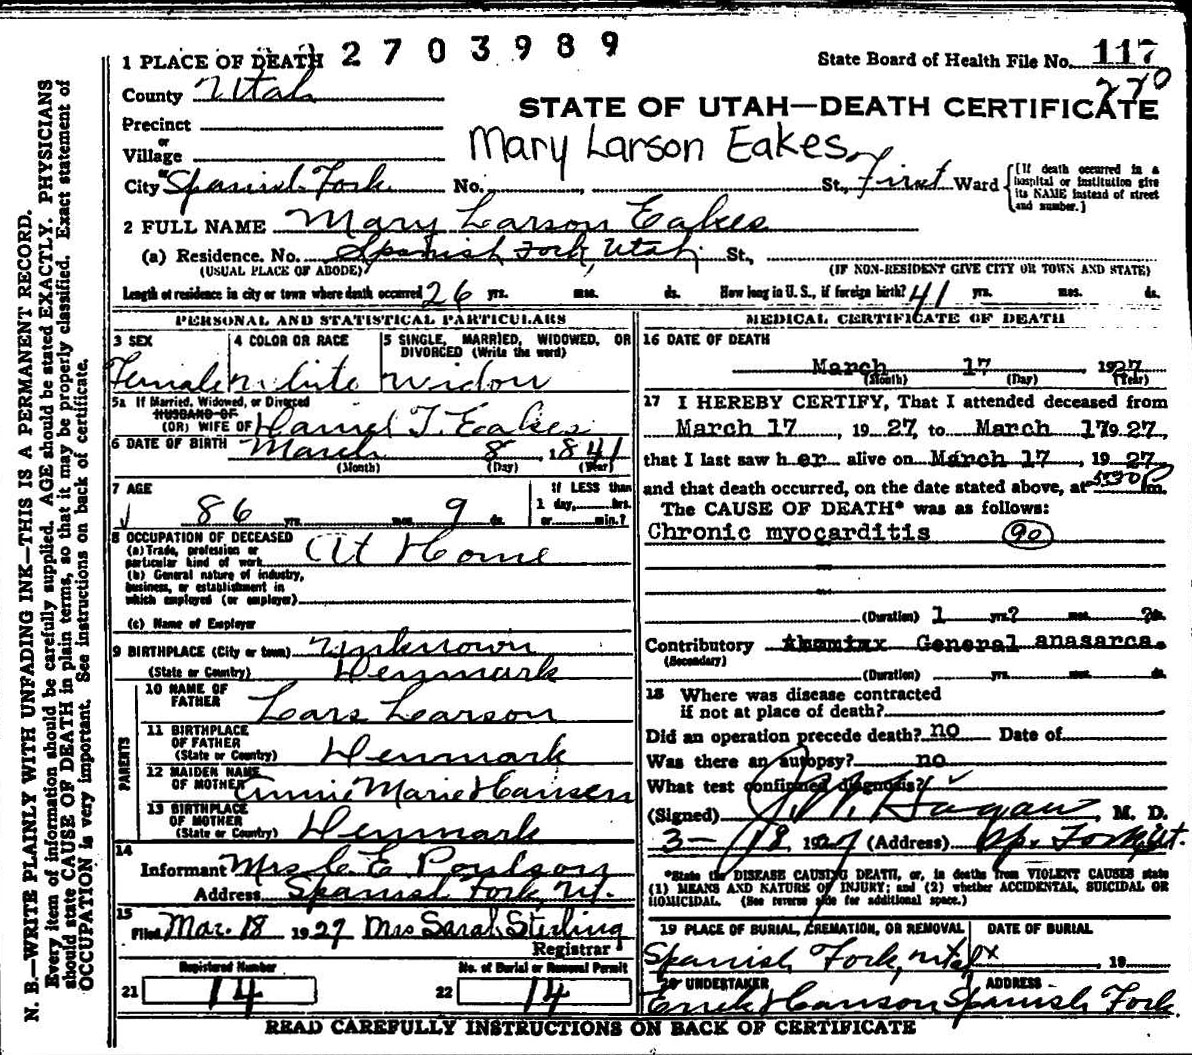 1 PLACE OF DEATH 2703989 State Board of Health File No. 117
270
County Utah
STATE OF UTAH—DEATH CERTIFICATE
Precinct
or
Village
Mary Larson Eakes
City Spanish Fork No. , St, First Ward {(If death occurred in a hospital or institution give its NAME instead of street and number.)
2 FULL NAME Mary Larson Eakes
(a) Residence. No. Spanish Fork, Utah St,
(USUAL PLACE OF ABODE) (IF NON-RESIDENT GIVE CITY OR TOWN AND STATE)
Length of residence in city or town where death occurred 26 yrs. mos. ds. How long in U. S., if foreign birth? 41 yrs. mos. ds.
PERSONAL AND STATISTICAL PARTICULARS
3 SEX 4 COLOR OR RACE 5 SINGLE, MARRIED, WIDOWED, OR DIVORCED (Write the word)
Female white widow
5a If Married, Widowed, or Divorced
HUSBAND OF
(OR) WIFE OF Daniel T. Eakes
6 DATE OF BIRTH March 8, 1841
(Month) (Day) (Year)
7 AGE If LESS than
86 yrs. mos. 9 ds. 1 day, hrs.
or min.?
8 OCCUPATION OF DECEASED
(a) Trade, profession or
particular kind of work At Home
(b) General nature of industry,
business, or establishment in
which employed (or employer)
(c) Name of Employer
9 BIRTHPLACE (City or town) Unknown
(State or Country) Denmark
PARENTS
10 NAME OF
FATHER Lars Larson
11 BIRTHPLACE
OF FATHER
(State or Country) Denmark
12 MAIDEN NAME
OF MOTHER Annie Marie Hansen
13 BIRTHPLACE
OF MOTHER
(State or Country) Denmark
14
Informant Mrs C E Poulson
Address Spanish Fork, Ut.
15
Filed Mar. 18 1927 Mrs Sarah Sterling
Registrar
Registered Number No. of Burial or Removal Permit
21 14 22 14
MEDICAL CERTIFICATE OF DEATH
16 DATE OF DEATH
March 17 1927
(Month) (Day) (Year)
17 I HEREBY CERTIFY, That I attended deceased from
March 17, 1927, to March 17 1927,
that I last saw her alive on March 17, 1927,
and that death occurred, on the date stated above, at 530 P m.
The CAUSE OF DEATH* was as follows:
Chronic myocarditis 90
(Duration) 1 yrs? mos. ?ds.
Contributory General anasarca.
(Secondary)
(Duration) yrs. mos. ds.
18 Where was disease contracted
if not at place of death?
Did an operation precede death? no Date of
Was there an autopsy? no
What test confirmed diagnosis?
(Signed) Hagan, M. D.
3-18, 1927 (Address) Sp. Fork Ut.
*State the DISEASE CAUSING DEATH, or, in deaths from VIOLENT CAUSES state
(1) MEANS AND NATURE OF INJURY; and (2) whether ACCIDENTAL, SUICIDAL OR
HOMICIDAL. (See reverse side for additional space.)
19 PLACE OF BURIAL, CREMATION, OR REMOVAL DATE OF BURIAL
Spanish Fork, Utah , 19
20 UNDERTAKER ADDRESS
Errick Hanson Spanish Fork
READ CAREFULLY INSTRUCTIONS ON BACK OF CERTIFICATE
N. B.—WRITE PLAINLY WITH UNFADING INK—THIS IS A PERMANENT RECORD.
Every item of information should be carefully supplied. AGE should be stated EXACTLY. PHYSICIANS
should state CAUSE OF DEATH in plain terms, so that it may be properly classified. Exact statement of
OCCUPATION is very important. See instructions on back of certificate.